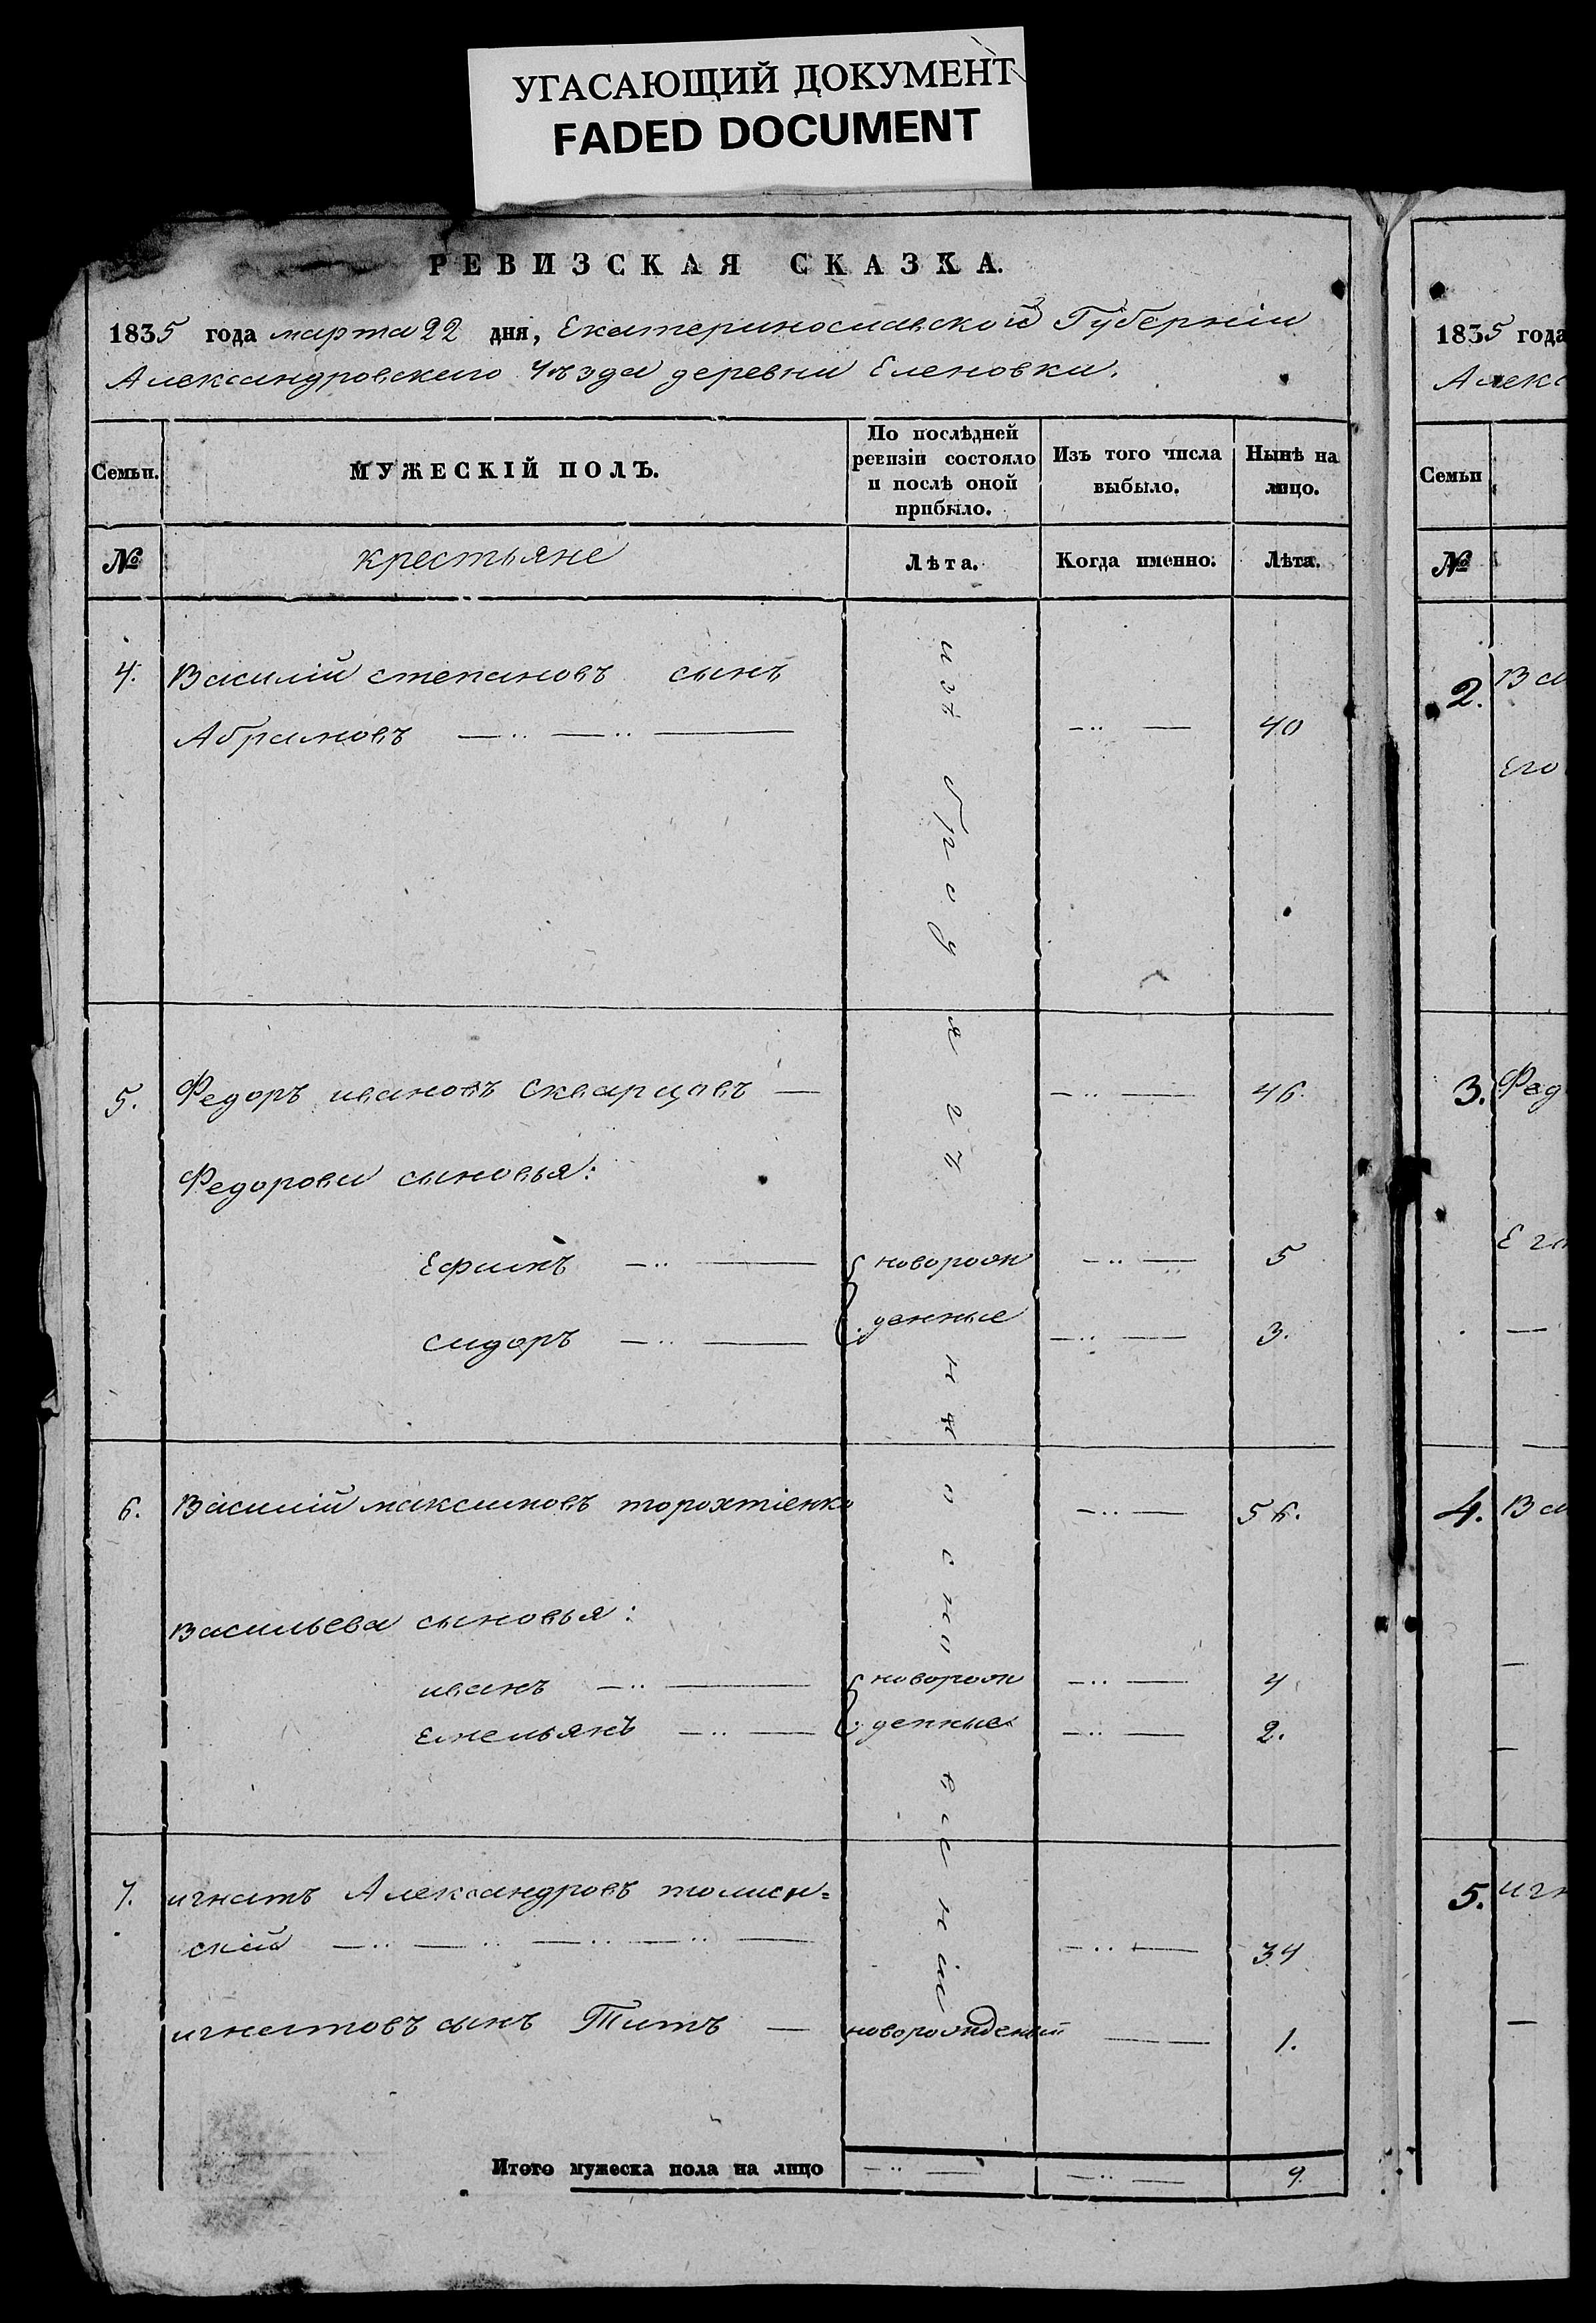 УГАСАЮЩИЙ ДОКУМЕНТ
FADED DOCUMENT
РЕВИЗСКАЯ СКАЗКА.
1835 года марта 22 дня, Екатеринославской Губерніи
Александровскаго Уѣзда деревни Еленовки.
Семьи.
МУЖЕСКІЙ ПОЛЪ.
По послѣдней ревизіи состояло и послѣ оной прибыло.
Изъ того числа выбыло.
Нынѣ на лицо.
№
крестьяне
Лѣта.
Когда именно.
Лѣта.
4. Василій степановъ сынъ
Абрамовъ 40
5. Федоръ ивановъ Скварцовъ 46.
Федоровы сыновья:
Ефимъ новорож 5
сидоръ денные 3.
6. Василій максимовъ торохтіенко 56.
Васильева сыновья:
иванъ новорож 4
Емельянъ денные 2.
7. игнатъ Александровъ
скій 34
игнатовъ сынъ Титъ новорожденный 1.
изъ
Итого мужеска пола на лицо 9.
1835 года
Алекс
Семьи
№
2. Вас
Его
3. Фед
Его
4. Вас
5. игн